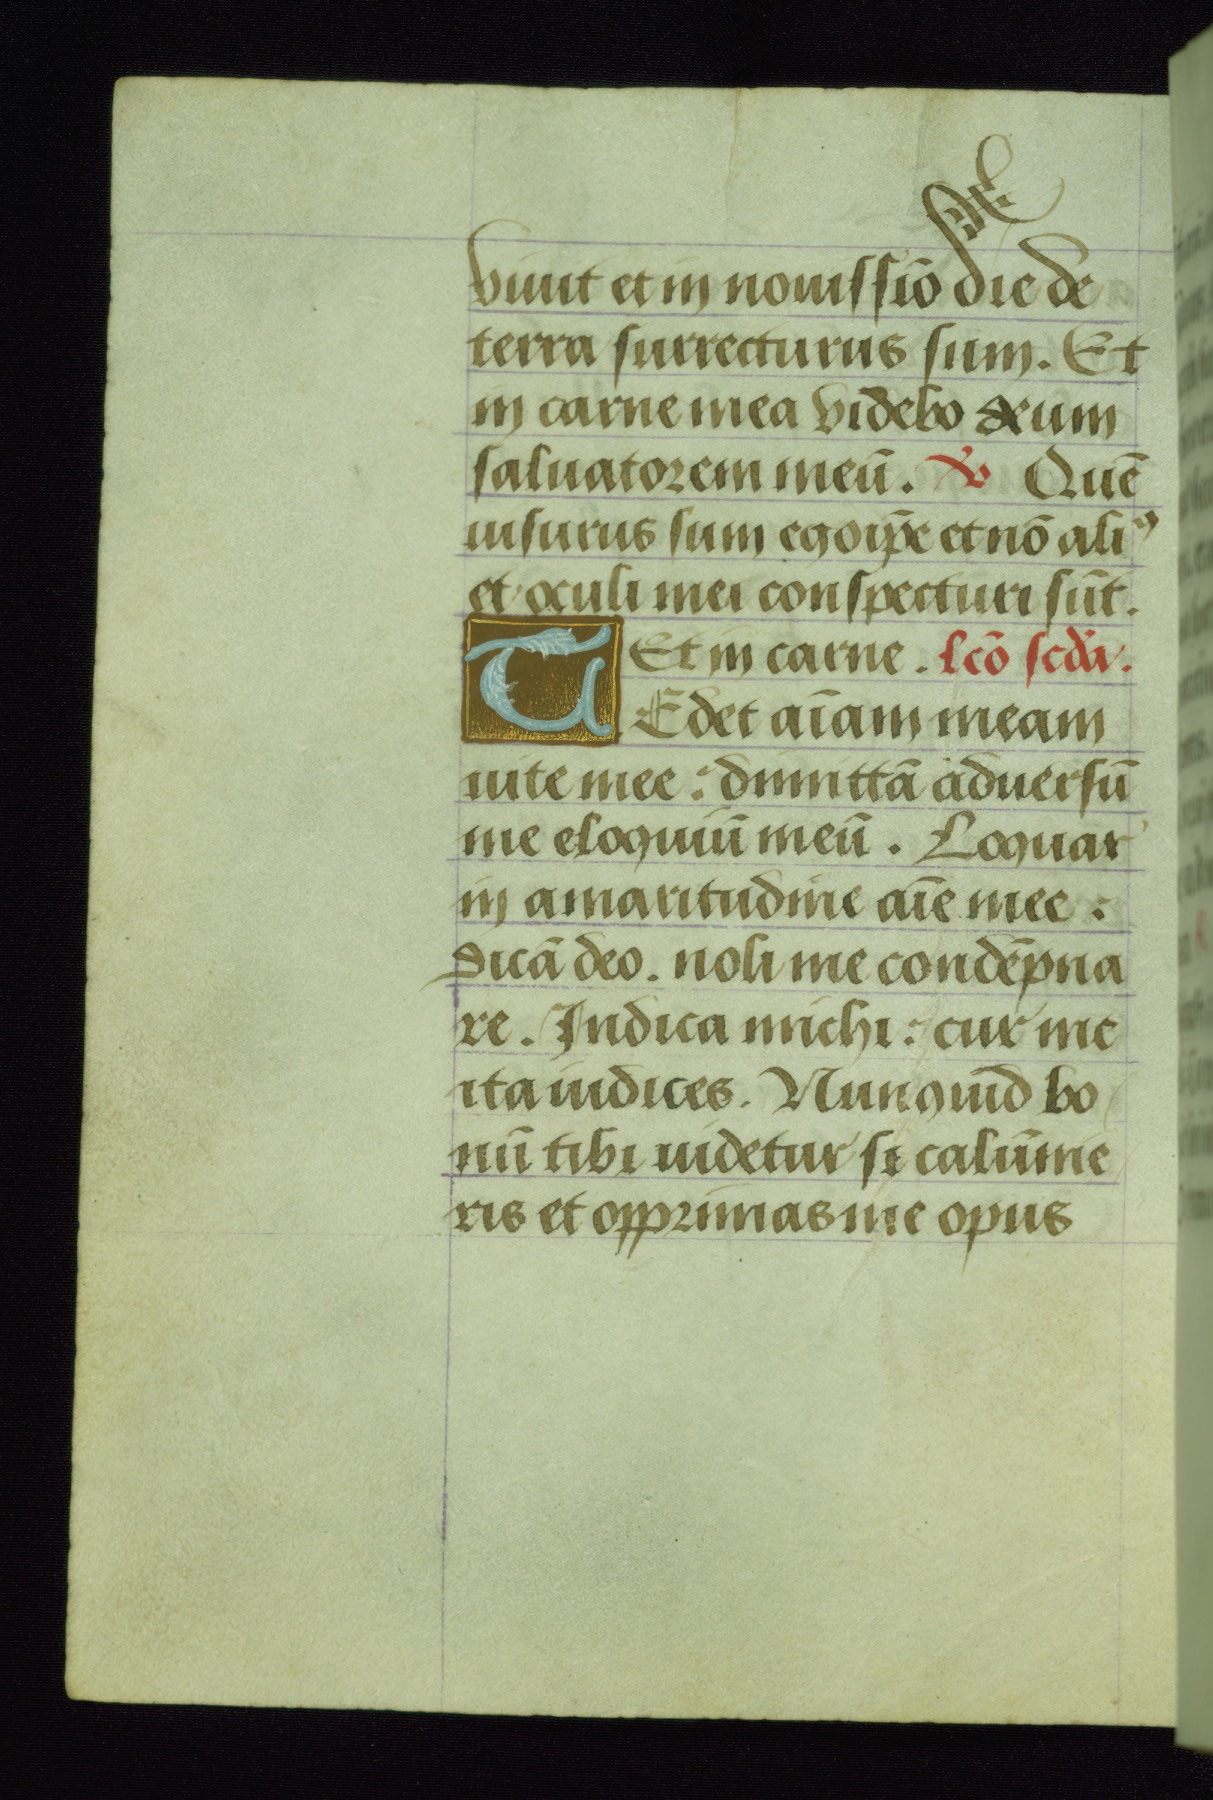 viuit et in nouissiō die de
terra surrecturus sum. Et
in carne mea videbo deum
saluatorem meū. ℣ Quē
uisurus sum ego ip̄e et nō aliꝰ
et oculi mei conspecturi sūt.
Et in carne. Lcō scd̄a.
TEdet aīam meam
uite mee: dimittā aduersū
me eloquiū meū. Loquar
in amaritudine aīe mee:
dicā deo. noli me condēpna
re. Indica michi: cur me
ita iudices. Nunquid bo
nū tibi uidetur si calūmie
ris et opprimas me opus